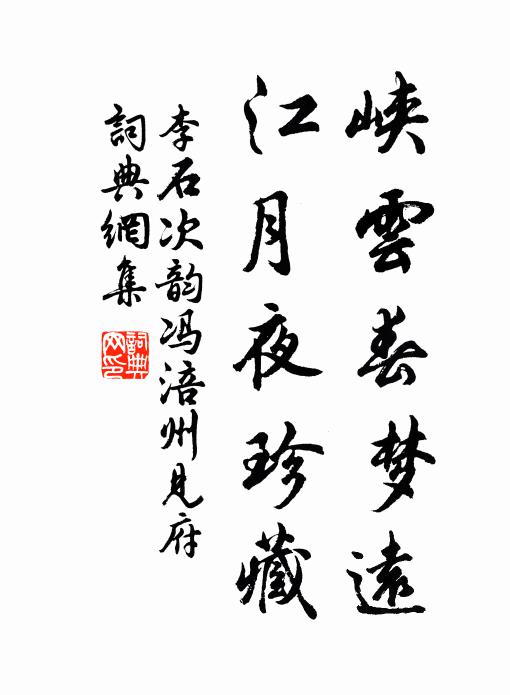 峡雲春梦遠
江月夜珍藏
李石次韵冯涪州见府
詞典網集
詞典网印